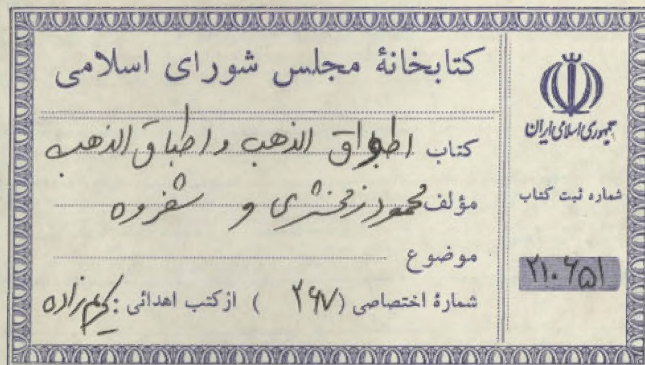 کتابخانهٔ مجلس شورای اسلامی
کتاب اطواق الذهب و اطباق الذهب
مؤلف محمود زمخشری و شفروه
موضوع
شمارهٔ اختصاصی (۲۶۷) از کتب اهدائی: کریم‌زاده
جمهوری اسلامی ایران
شماره ثبت کتاب
۲۱۰۶۵۱